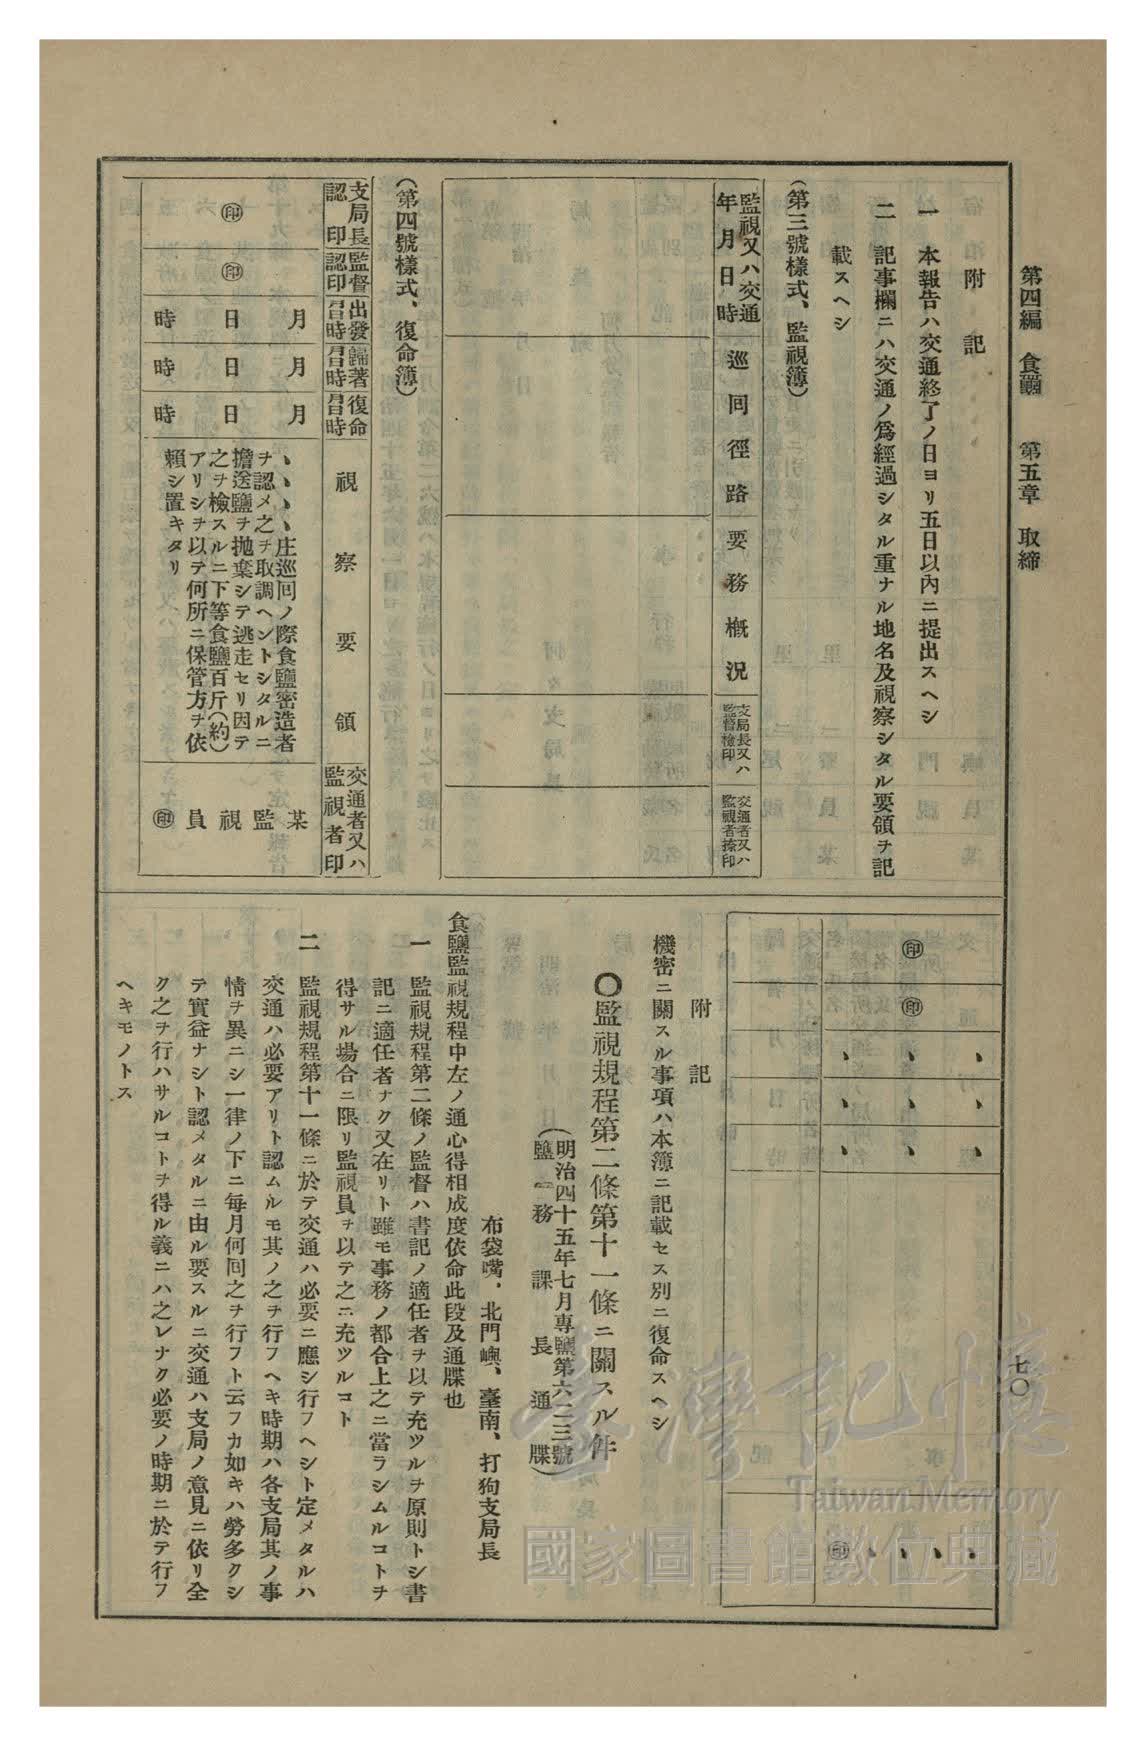 第四編 食鹽 第五章 取締
七〇
附記
一 本報告ハ交通終了ノ日ヨリ五日以內ニ提出スヘシ
二 記事欄ニハ交通ノ爲經過シタル重ナル地名及視察シタル要領ヲ記
載スヘシ
(第三號樣式、監視簿)
監視又ハ交通
年月日時
巡回徑路
要務槪況
支局長又ハ
監督檢印
交通者又ハ
監視者捺印
(第四號樣式、復命簿)
支局長
認印
監督
認印
出發
月日時
歸著
月日時
復命
月日時
視察要領
交通者又ハ
監視者印
㊞
㊞
月日時
月日時
月日時
、、、、庄巡回ノ際食鹽密造者
ヲ認メ之ヲ取調ヘントシタルニ
擔送鹽ヲ抛棄シテ逃走セリ因テ
之ヲ檢スルニ下等食鹽百斤(約)
アリシヲ以テ何所ニ保管方ヲ依
賴シ置キタリ
某監視員㊞
㊞
㊞
、、、
、、、
、、、
、、、、㊞
附記
機密ニ關スル事項ハ本簿ニ記載セス別ニ復命スヘシ
〇監視規程第二條第十一條ニ關スル件
(明治四十五年七月專鹽第六二三號
鹽務課長通牒)
布袋嘴、北門嶼、臺南、打狗支局長
食鹽監視規程中左ノ通心得相成度依命此段及通牒也
一 監視規程第二條ノ監督ハ書記ノ適任者ヲ以テ充ツルヲ原則トシ書
記ニ適任者ナク又在リト雖モ事務ノ都合上之ニ當ラシムルコトヲ
得サル場合ニ限リ監視員ヲ以テ之ニ充ツルコト
二 監視規程第十一條ニ於テ交通ハ必要ニ應シ行フヘシト定メタルハ
交通ハ必要アリト認ムルモ其ノ之ヲ行フヘキ時期ハ各支局其ノ事
情ヲ異ニシ一律ノ下ニ每月何回之ヲ行フト云フカ如キハ勞多クシ
テ實益ナシト認メタルニ由ル要スルニ交通ハ支局ノ意見ニ依リ全
ク之ヲ行ハサルコトヲ得ル義ニハ之レナク必要ノ時期ニ於テ行フ
ヘキモノトス
臺灣記憶
Taiwan Memory
國家圖書館數位典藏